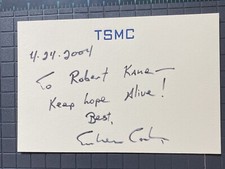 TSMC
4.24.2004
To Robert
Keep hope Alive!
Best,